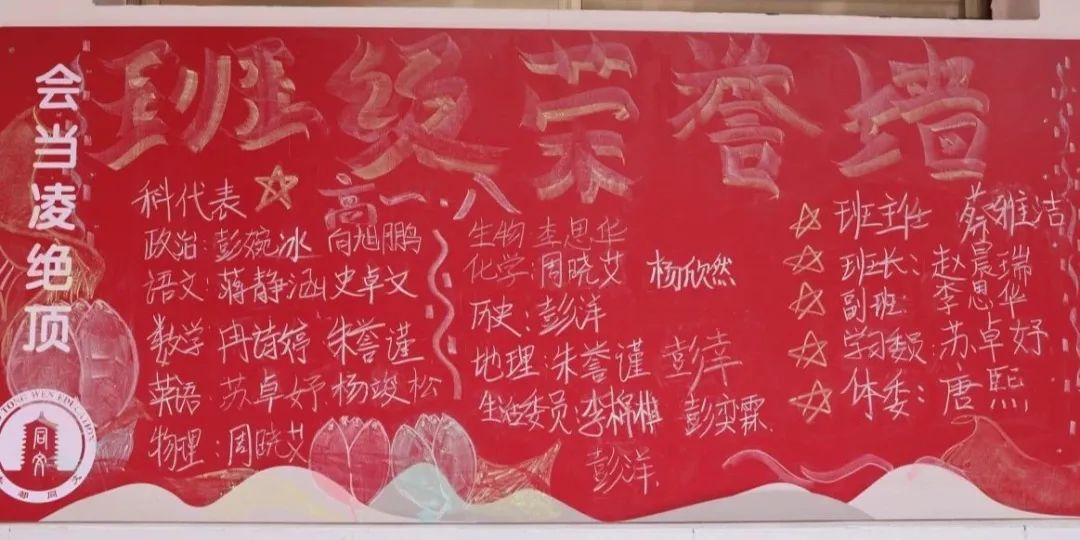 班级荣誉墙
会当凌绝顶
高一·八
科代表
政治:彭婉冰 向旭鹏
语文:蒋静涵 史卓文
数学 冉诗婷 朱誉谨
英语 苏卓妤 杨竣松
物理:周晓艾
生物 李思华
化学:周晓艾 杨欣然
历史:彭洋
地理:朱誉谨 彭幸
生活委员: 彭奕霖
彭洋
班主任 蔡雅洁
班长:赵晨瑞
副班 李思华
学习委员:苏卓妤
体委:唐熙
TONG WEN EDUCATION
同文